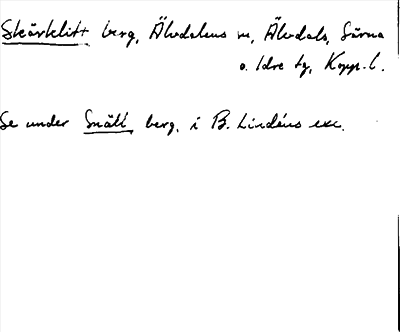 Skärklitt berg, Älvdalens sn, Älvdals, Särna
o. Idre tg, Kopp. l.
Se under Snätt, berg, i B. Lindéns exc.